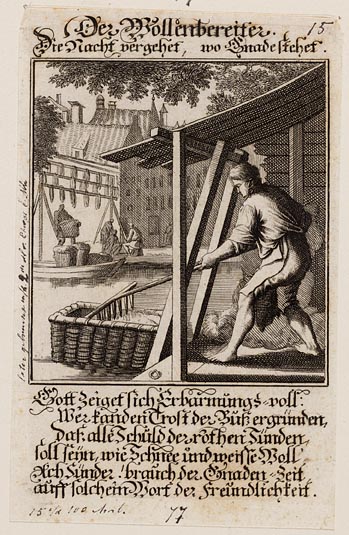 Der Wollenbereiter.
15
Die Nacht vergehet, wo Gnade stehet.
Gott zeiget sich Erbarmungs-voll:
Wer kan den Trost der Büß ergründen,
Daß alle Schuld der röthen Sünden,
soll seyn, wie Schnee und weisse Woll
Ach Sünder! brauch der Gnaden-Zeit
auff solchein Wort der Freundlichkeit.
77